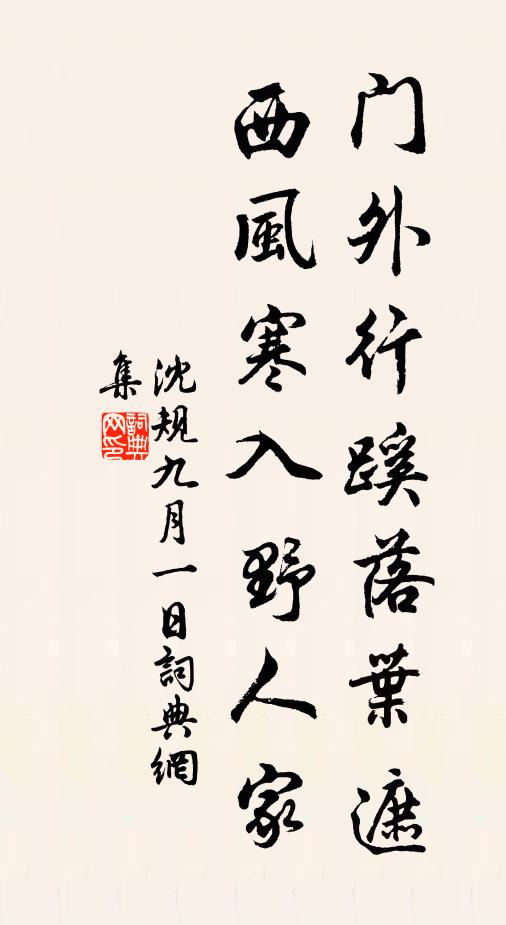 門外行蹊落葉遮
西風寒入野人家
沈規九月一日詞典網
集
詞典
网印